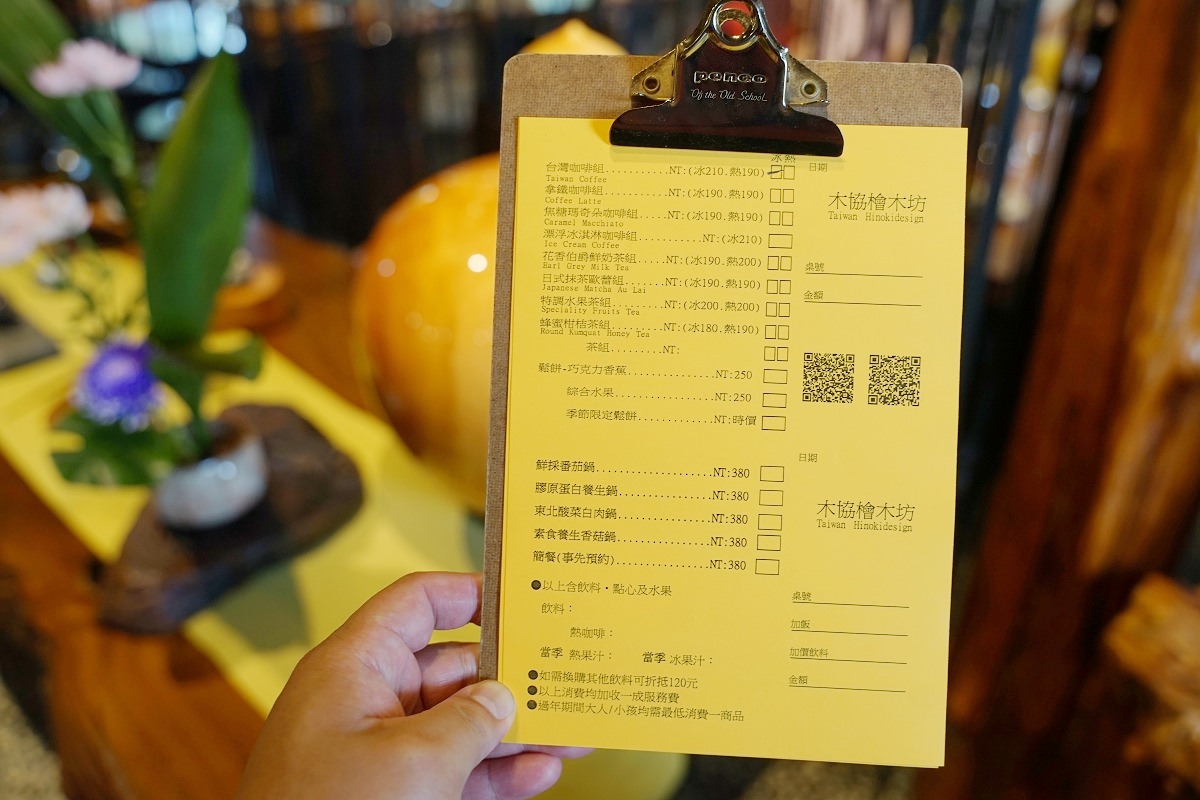 penco
"Off the Old School"
冰 熱
台灣咖啡組..........NT:(冰210.熱190)
Taiwan Coffee
拿鐵咖啡組..........NT:(冰190.熱190)
Coffee Latte
焦糖瑪奇朵咖啡組.....NT:(冰190.熱190)
Caramel Macchiato
漂浮冰淇淋咖啡組...........NT:(冰210)
Ice Cream Coffee
花香伯爵鮮奶茶組.....NT:(冰190.熱200)
Earl Grey Milk Tea
日式抹茶歐蕾組.......NT:(冰190.熱190)
Japanese Matcha Au Lai
特調水果茶組.........NT:(冰200.熱200)
Speciality Fruits Tea
蜂蜜柑桔茶組.........NT:(冰180.熱190)
Round Kumquat Honey Tea
茶組.........NT:
鬆餅-巧克力香蕉...............NT:250
綜合水果.................NT:250
季節限定鬆餅.............NT:時價
日期
木協檜木坊
Taiwan Hinokidesign
桌號
金額
鮮採番茄鍋...................NT:380
膠原蛋白養生鍋................NT:380
東北酸菜白肉鍋................NT:380
素食養生香菇鍋................NT:380
簡餐(事先預約)................NT:380
●以上含飲料・點心及水果
飲料：
熱咖啡：
當季 熱果汁： 當季 冰果汁：
●如需換購其他飲料可折抵120元
●以上消費均加收一成服務費
●過年期間大人/小孩均需最低消費一商品
日期
木協檜木坊
Taiwan Hinokidesign
桌號
加飯
加價飲料
金額